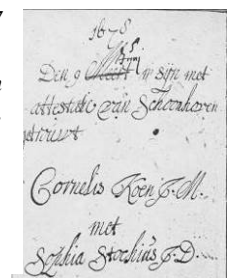 1678
Juny
Den 9 Meert in Sijn met
attestatie van Schoonhoven
getrouwt
Cornelis Koen J.M.
met
Sophia Stochius J.D.